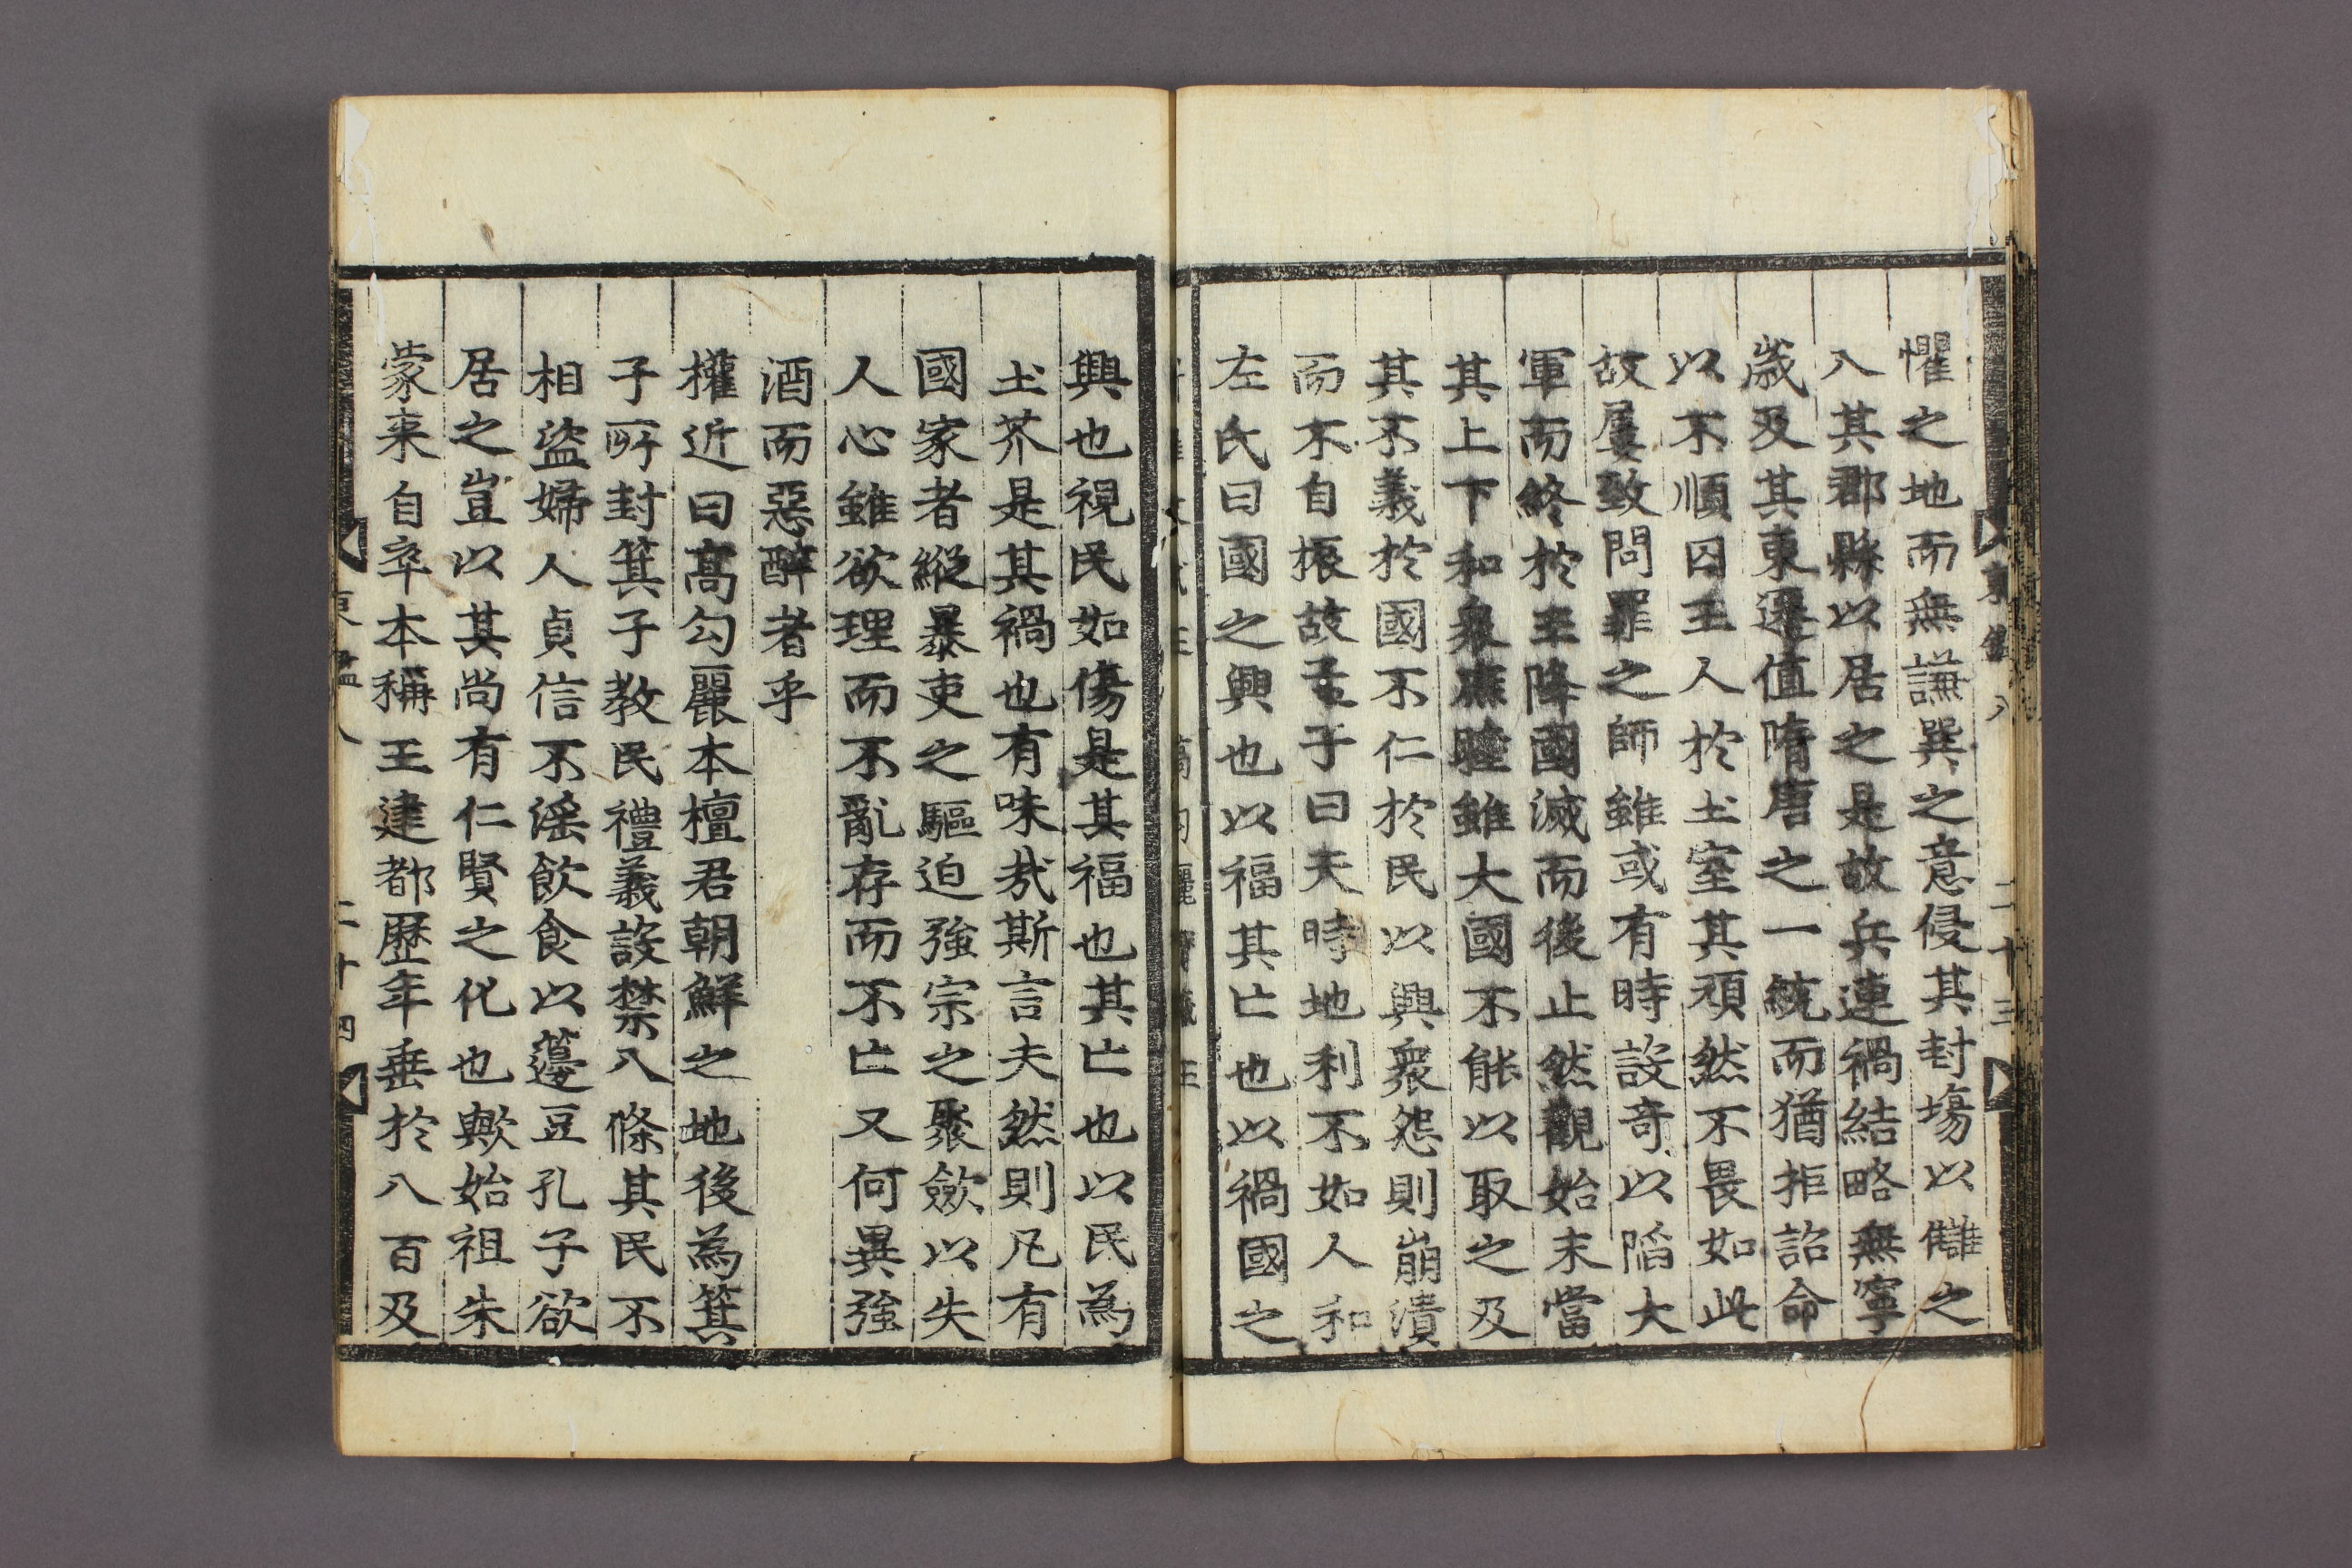 懼之地而無謙巽之意侵其封塲以讎之
八其郡縣以居之是故兵連禍結略無寧
歲及其東遷值隋唐之一統而猶拒詔命
以不順囚王人於土室其頑然不畏如此
故屢致問罪之師雖或有時設奇以陷大
軍而終於王降國滅而後止然觀始末當
其上下和衆庶睦雖大國不能以取之及
其不義於國不仁於民以興衆怨則崩潰
而不自振故孟子曰天時地利不如人和
左氏曰國之興也以福其亡也以禍國之
東鑑八 二十三
興也視民如傷是其福也其亡也以民為
土芥是其禍也有味㢤斯言夫然則凡有
國家者縱暴吏之驅迫強宗之聚歛以失
人心雖欲理而不亂存而不亡又何異強
酒而惡醉者乎
權近曰髙勾麗本檀君朝鮮之地後為箕
子所封箕子教民禮義設禁八條其民不
相盜婦人貞信不滛飲食以籩豆孔子欲
居之豈以其尚有仁賢之化也歟始祖朱
蒙来自卒本稱王建都歷年垂於八百及
東鑑八 二十四